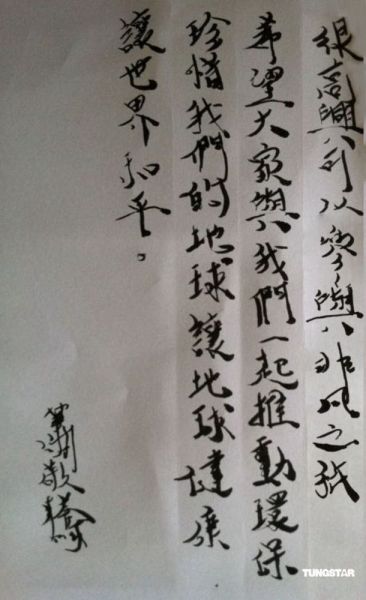 很高興可以參與非凡之紙
希望大家與我們一起推動環保
珍惜我們的地球讓地球健康
讓世界和平。
蕭敬騰
TUNGSTAR